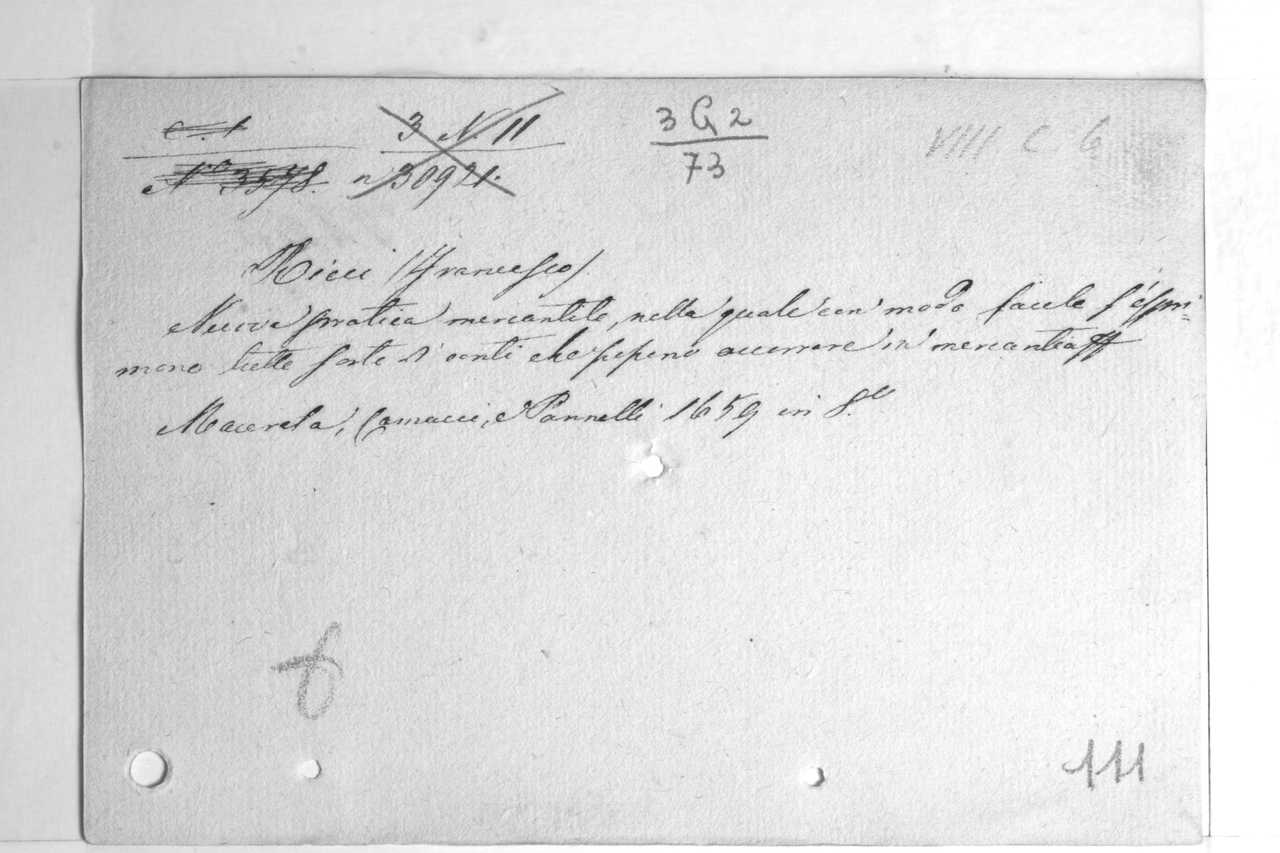 C. 1 3 N. 11 3 G 2 VIII C 6
No 3578. n 30921. 73
Ricci (Francesco)
Nuova pratica mercantile, nella quale con modo facile s'espri=
mono tutte sorte d'conti che possono occorrere in mercantia
Macerata, Camacci, e Pannelli 1659 in 8.o
111